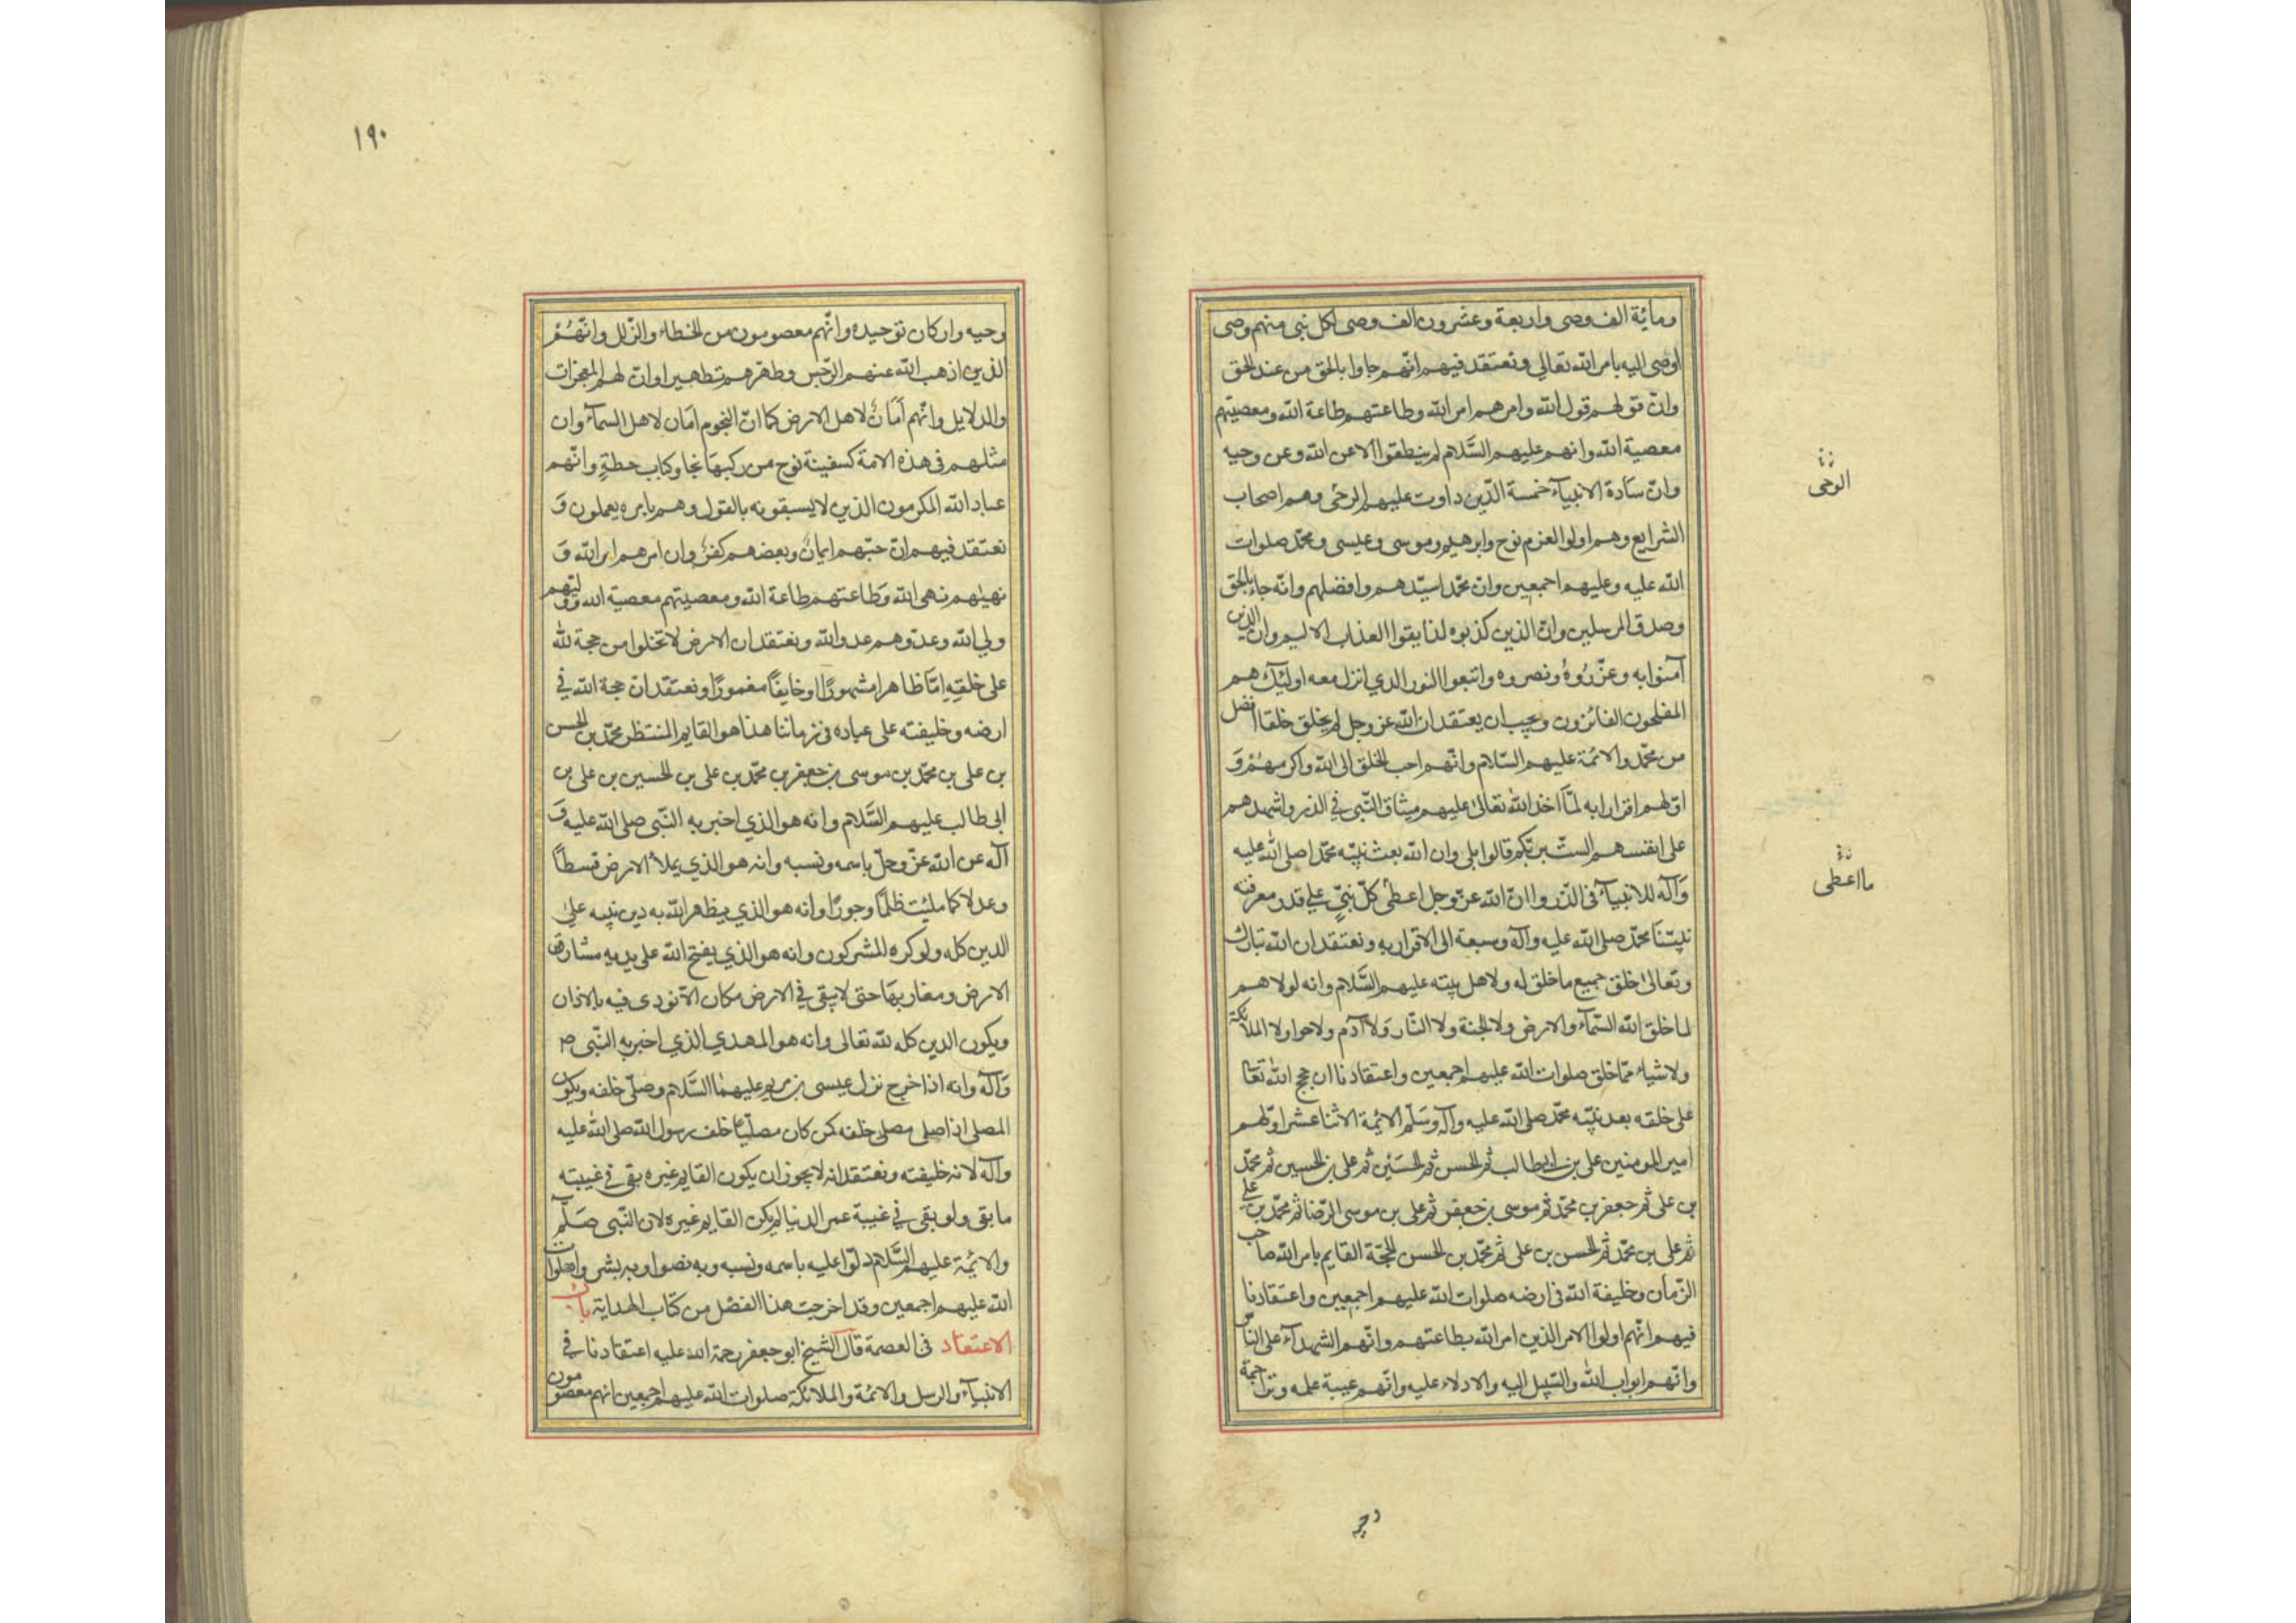 ومائة الف وصى واربعة وعشرون الف وصى لكل نبى منهم وصى
اوصى اليه بامر الله تعالي ونعتقد فيهم انّهم جاوا بالحق من عند الحق
وانّ قولهم قول الله وامرهم امر الله وطاعتهم طاعة الله ومعصيتهم
معصية الله وانهم عليهم السَّلام لم ينطقوا الا عن الله وعن وحيه
وانّ سَادة الانبيآء خمسة الّذين داوت عليهم الوحى وهم اصحاب
الشرايع وهم اولوا العزم نوح وابرهيم وموسى وعيسى ومحمّد صلوات
الله عليه وعليهم اجمعين وانّ محمّدا سيّدهم وافضلهم وانّه جاء بالحق
وصدق المرسلين وانّ الذين كذبوه لذايقوا العذاب الاليم وان الذين
آمنوا به وعزّروُهُ ونصروه واتبعوا النور الذي انزل معه اولئك هم
المفلحون الفائزون ويجب ان يعتقد ان الله عز وجل لم يخلق خلقا افضل
من محمّد والائمّة عليهم السّلام وانّهم احب الخلق الى الله واكرمهُمْ وَ
اوّلهم اقرارا به لمّا اخذ الله تعالى عليهم ميثاق النّبى في الذر واشهدهم
على انفسهم الستُ بربّكم قالوا بلى وان الله بعث نبيّه محمّدا صلى الله عليه
وَآله للانبيآء فى الذّر وانّ الله عزّ وجل اعطى كلّ نبىّ على قدر معرفته
نبيّنا محمّد صلى الله عليه وآله وسبقه الى الاقرار به ونعتقد ان الله تبارك
وتعالى خلق جميع ما خلق له ولاهل بيته عليهم السَّلام وانه لولاهم
لما خلق الله السّمآء والارض ولا الجنة ولا النّار وَلا آدَم ولا حوا ولا الملائكة
ولا شياء ممّا خلق صلوات الله عليهم اجمعين واعتقادنا ان حجج الله تعا
على خلقه بعد نبيّه محمّد صلى الله عليه وآله وَسَلّم الائمة الاثنا عشر اوّلهم
امير المومنين على بن ابيطالب ثم الحسن ثم الحسَيْن ثم على بن الحسين ثم محمّد
بن على ثم جعفر بن محمّد ثم موسى بن جعفر ثم على بن موسى الرّضا ثم محمّد بن على
ثم على بن محمّد ثم الحسن بن على ثم محمّد بن الحسن الحجّة القايم بامر الله صاحب
الزّمان وخليفة الله فى ارضه صلوات الله عليهم اجمعين واعتقادنا
فيهم انّهم اولوا الامر الذين امر الله بطاعتهم وانّهم الشهدآء على النّاس
وانّهم ابواب الله والسّبيل اليه والادلاء عليه وانّهم عيبة علمه وتراجمة
الوحى
ما اعطى
وحيه
١٩٠
وحيه واركان توحيده وانّهم معصومون من الخطاء والزّلل وانّهُمْ
الذين اذهب الله عنهم الرّجس وطهّرهم تطهيرا وانّ لهم المعجزات
والدلايل وانّهم اَمَانٌ لاهل الارض كما انّ النجوم اَمَان لاهل السمآء وان
مثلهم فى هذه الامة كسفينة نوح من ركبهَا نجا وكباب حطةٍ وانّهم
عباد الله المكرمون الذين لا يسبقونه بالقول وهم بامره يعملون وَ
نعتقد فيهم انّ حبّهم ايمانٌ وبعضهم كفرٌ وان امرهم امر الله وَ
نهيهم نهى الله وَطاعتهم طاعة الله ومعصيتهم معصية الله ووليّهم
ولي الله وعدوّهم عدو الله ونعتقد ان الارض لا تخلوا من حجة لله
على خلقهِ امّا ظاهرا مشهورًا او خايفًا مغمورًا ونعتقد انّ حجة الله في
ارضه وخليفته على عباده فى زماننا هذا هو القايم المنتظر محمّد بن الحسن
بن على بن محمّد بن موسى بن جعفر بن محمّد بن على بن الحسين بن على بن
ابى طالب عليهم السَّلام وانه هو الذي اخبر به النّبى صلى الله عليه وَ
آله عن الله عزّ وجلّ باسمه ونسبه وانه هو الذي يملأ الارض قسطًا
وعدلا كما ملئت ظلمًا وجورًا وانه هو الذي يظهر الله به دين نبيه على
الدين كله ولو كره المشركون وانه هو الذي يفتح الله على يديه مشارق
الارض ومغاربهَا حتى لا يبقى في الارض مكان الّا نودى فيه بالاذان
ويكون الدين كله لله تعالى وانه هو المهدي الذي اخبر به النّبى ص
وَآله وانه اذا خرج نزل عيسى بن مريم عليهما السَّلام وصلّى خلفه ويكون
المصلى اذا صلى خلفه كمن كان مصلّيًا خلف رسول الله صلى الله عليه
وآله لانه خليفته ونعتقد انه لا يجوز ان يكون القايم غيره بقى في غيبته
ما بقى ولو بقى في غيبة عمر الدنيا لم يكن القايم غيره لان النّبى صَلّم
والائمّة عليهم السَّلام دلّوا عليه باسمه ونسبه وبه نصوا وبه بشروا صلوات
الله عليهم اجمعين وقد اخرجت هذا الفصْل من كتاب الهداية باب
الاعتقاد فى العصمة قال الشيخ ابو جعفر رحمة الله عليه اعتقادنا في
الانبيآء والرسل والائمّة والملائكة صلوات الله عليهم اجمعين انهم معصومون